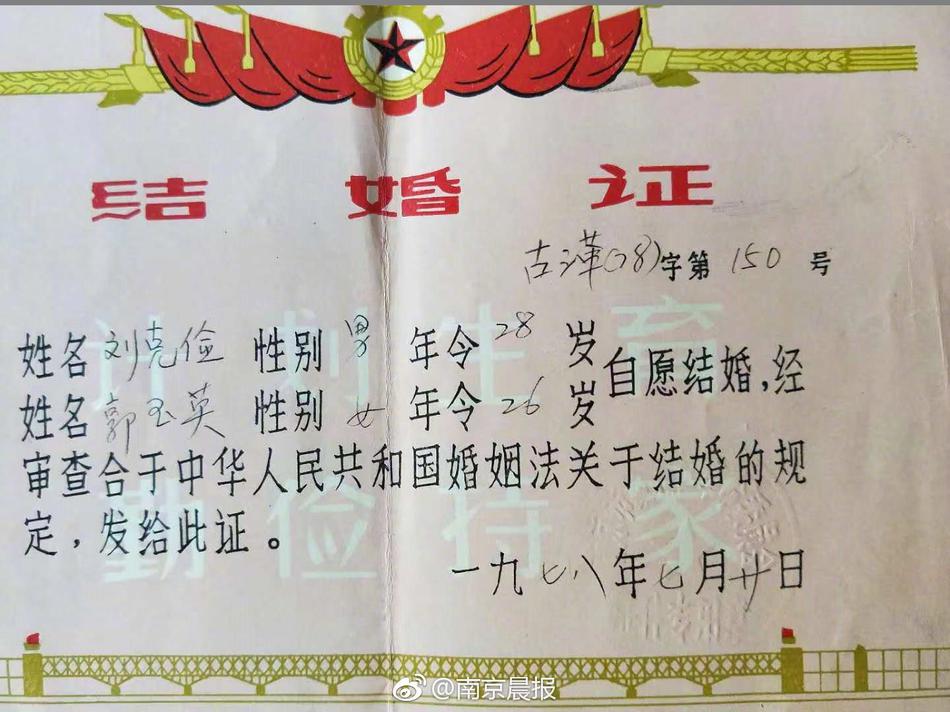 结婚证
古革(78)字第150号
姓名刘克俭 性别男 年令28岁
姓名郭玉英 性别女 年令26岁
自愿结婚,经
审查合于中华人民共和国婚姻法关于结婚的规
定,发给此证。
一九七八年七月廿日
计划生育
勤俭持家
@南京晨报